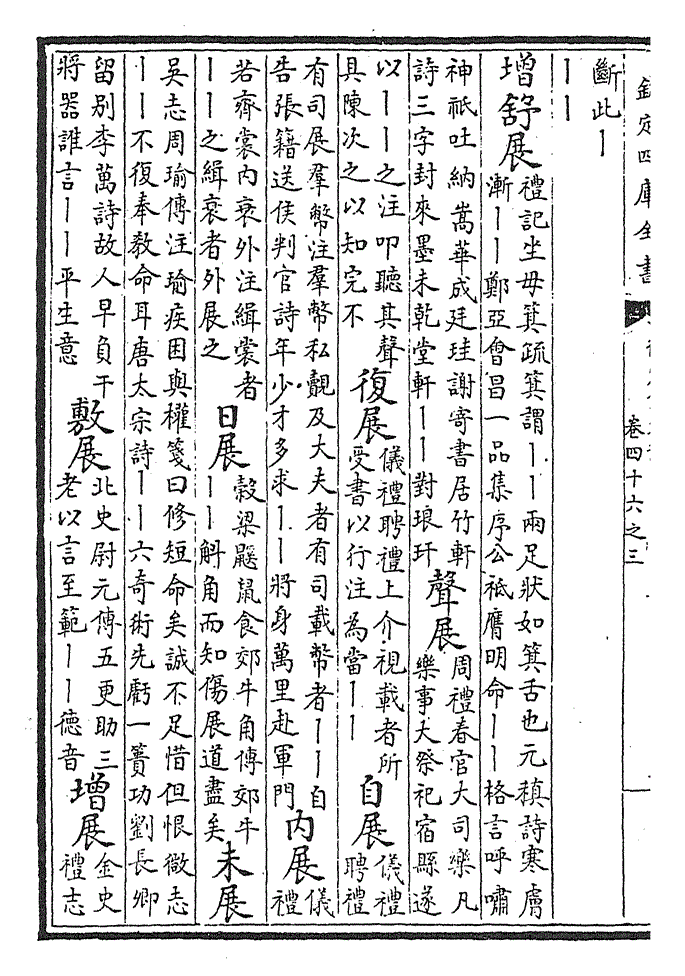 欽定四庫全書
卷四十六之三
斷此丨
丨丨
增舒展
禮記坐毋箕疏箕謂丨丨兩足狀如箕舌也元稹詩寒膚
漸丨丨鄭亞會昌一品集序公祗膺明命丨丨格言呼嘯
神祇吐納嵩華成廷珪謝寄書居竹軒
詩三字封來墨未乾堂軒丨丨對琅玕
聲展
周禮春官大司樂凡
樂事大祭祀宿縣遂
以丨丨之注叩聽其聲
具陳次之以知完不
復展
儀禮聘禮上介視載者所
受書以行注為當丨丨
自展
儀禮
聘禮
有司展羣幣注羣幣私覿及大夫者有司載幣者丨丨自
告張籍送侯判官詩年少才多求丨丨將身萬里赴軍門
内展
儀
禮
若齊裳内衰外注緝裳者
丨丨之緝衰者外展之
日展
穀梁鼷鼠食郊牛角傳郊牛
丨丨斛角而知傷展道盡矣
未展
吳志周瑜傳注瑜疾困與權箋曰修短命矣誠不足惜但恨微志
丨丨不復奉教命耳唐太宗詩丨丨六奇術先虧一簣功劉長卿
留别李萬詩故人早負干
將器誰言丨丨平生意
敷展
北史尉元傳五更助三
老以言至範丨丨德音
增展
金史
禮志